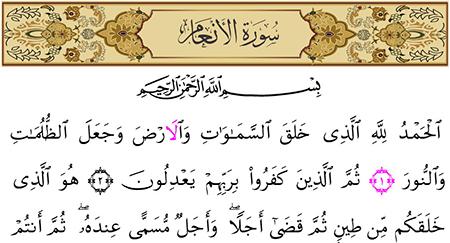 سُورَةُ الأَنْعَامِ
بِسْمِ اللَّهِ الرَّحْمَٰنِ الرَّحِيمِ
اَلْحَمْدُ لِلَّهِ الَّذِى خَلَقَ السَّمَـٰوَاتِ وَالَارْضَ وَجَعَلَ الظُّلُمَـٰتِ
وَالنُّورَ ﴿١﴾ ثُمَّ الَّذِينَ كَفَرُوا۟ بِرَبِّهِمْ يَعْدِلُونَ ﴿٢﴾ هُوَ الَّذِى
خَلَقَكُم مِّن طِينٍ ثُمَّ قَضَىٰٓ أَجَلًا ۖ وَأَجَلٌ مُّسَمًّى عِندَهُۥ ۖ ثُمَّ أَنتُمْ